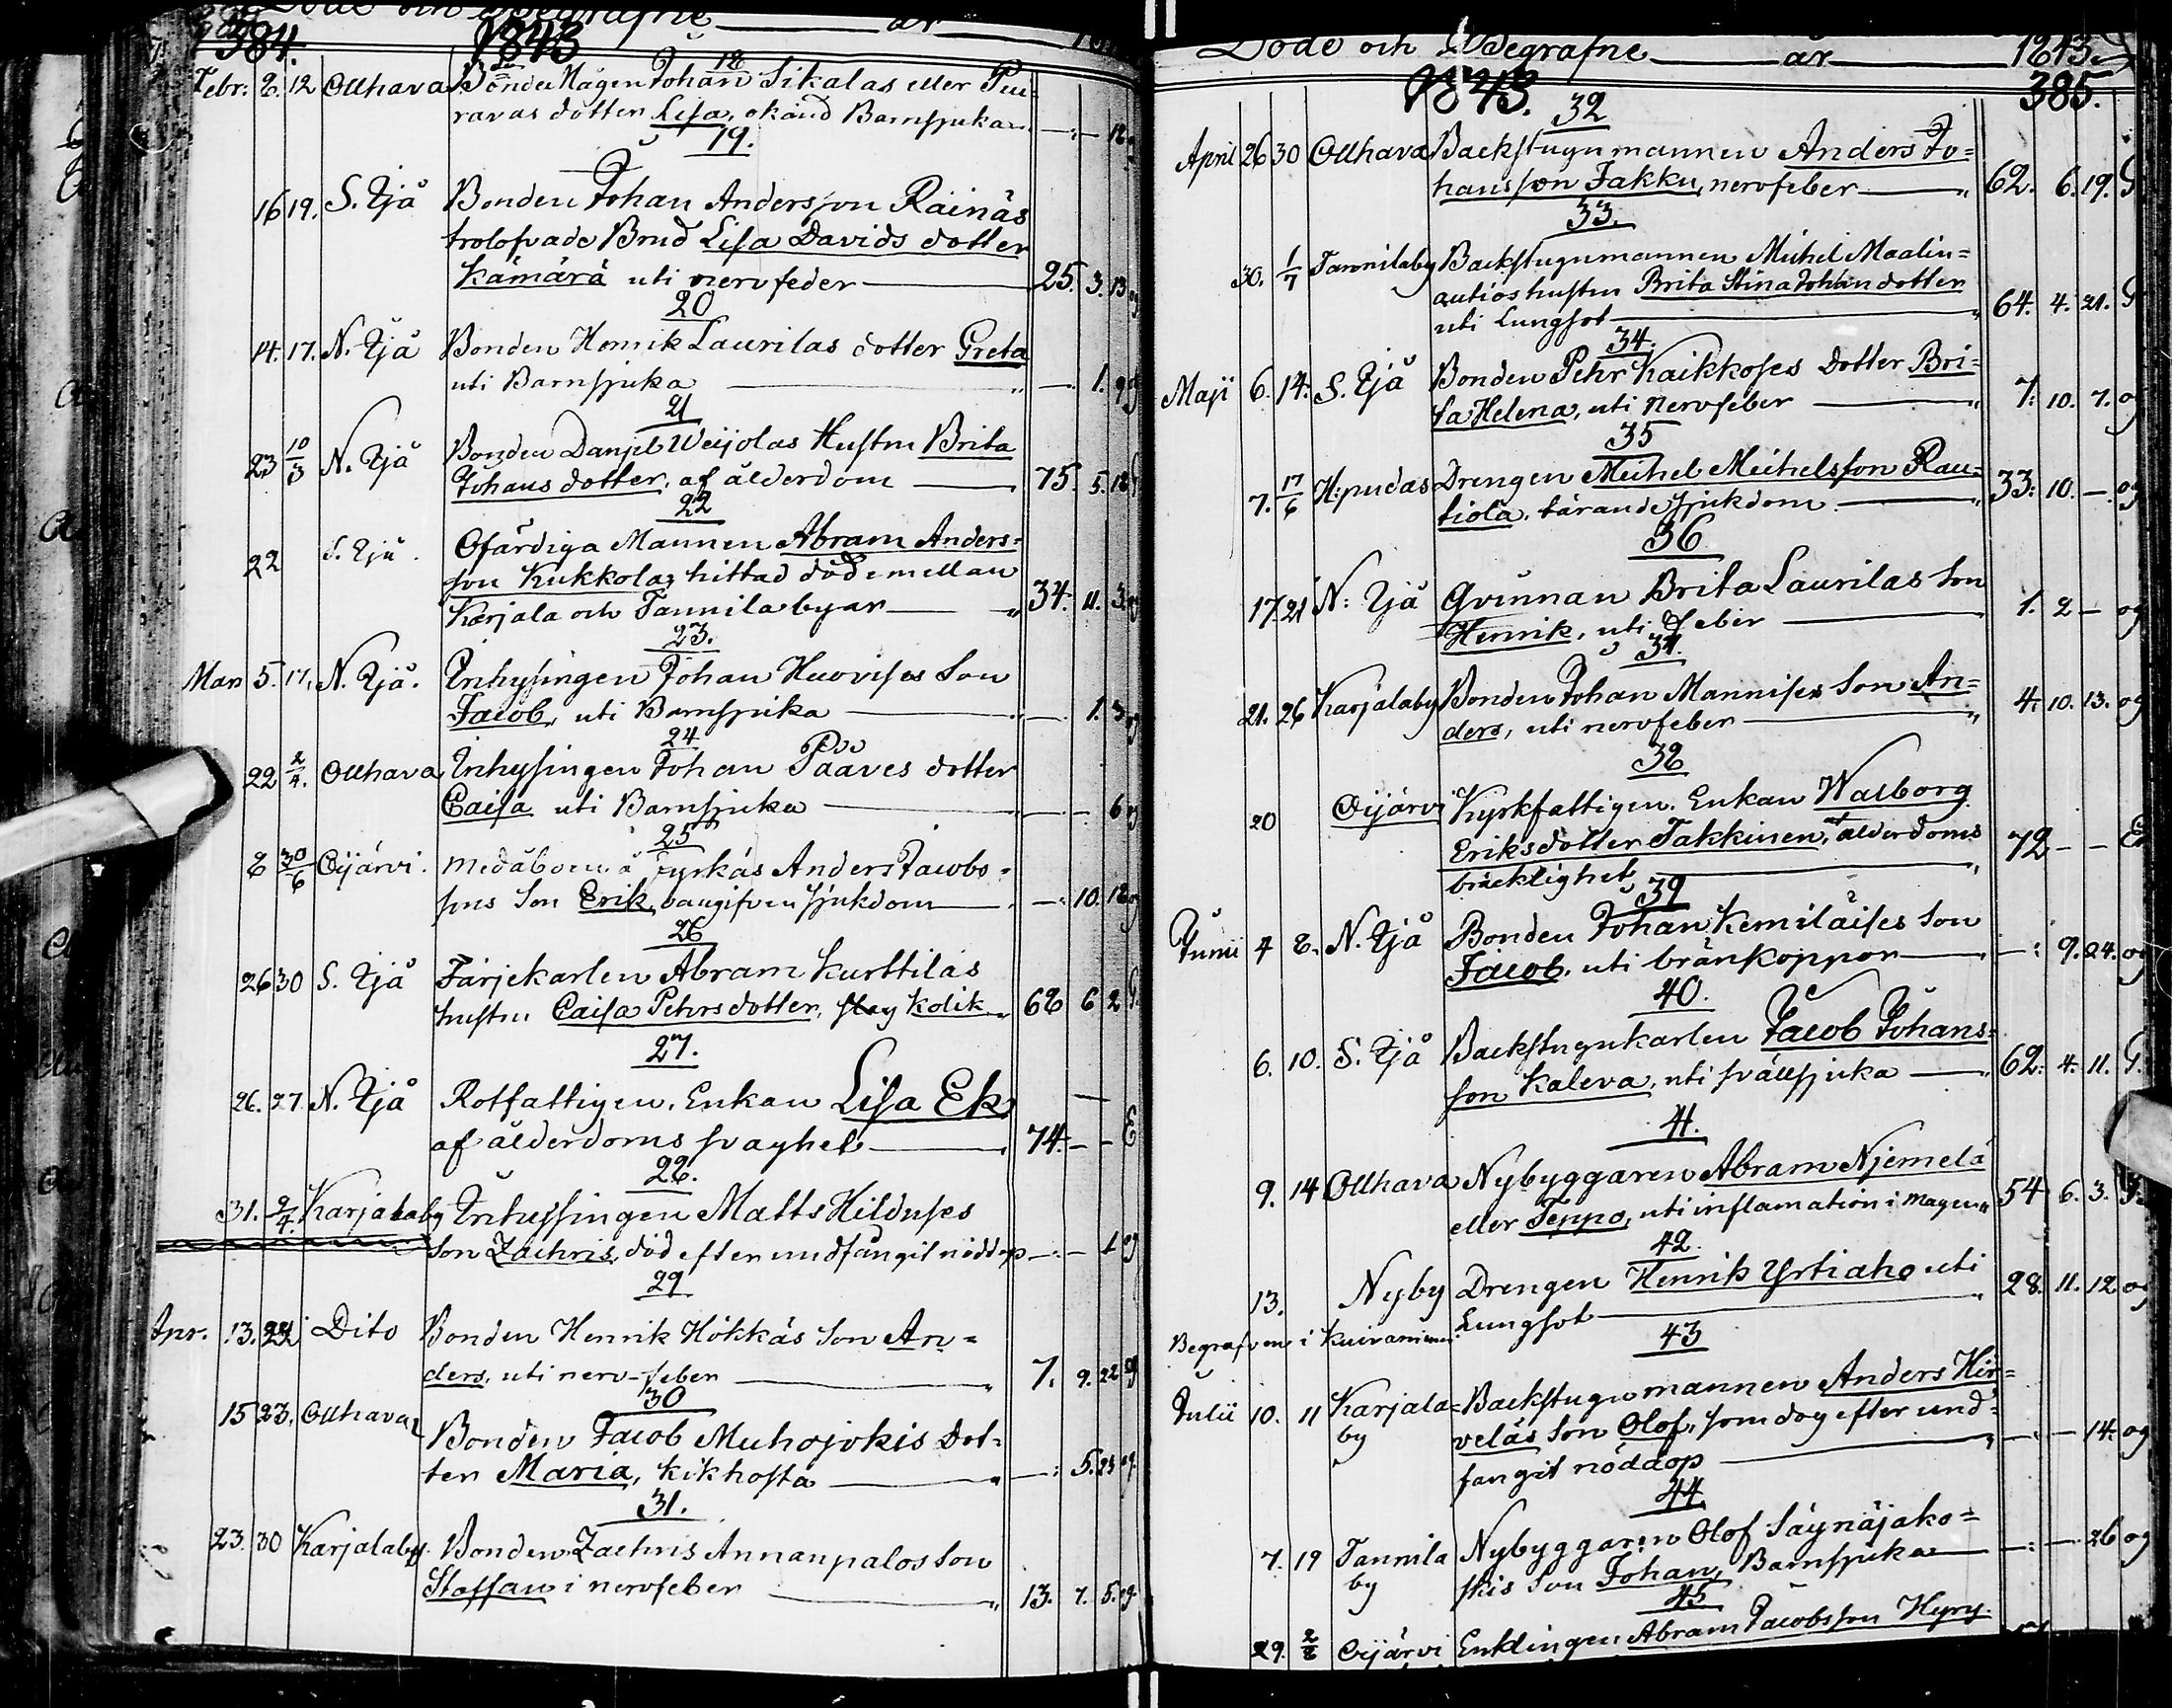 Döde och Begrafne år
384. 1843
18
Febr: 8. 12 Ollhava Bonde Mågen Johan Sikalas eller Puu-
ravas dotter Lisa, okänd Barnsjukan — : — 18
19.
16 19. S. Ijå Bonden Johan Andersson Räinäs
trolofvade Brud Lisa Davids dotter
Kämärä uti nervfeber 25. 3. 13
20
14. 17. N. Ijå Bonden Henrik Laurilas dotter Greta
uti Barnsjuka — 1. 9 og
21
23 10/3 N. Ijå Bonden Daniel Weijolas Hustru Brita
Johans dotter, af ålderdom 75. 5. 18
22
22 S. Ijå. Ofärdiga Mannen Abram Anders-
son Kukkola, hittad död emellan
Karjala och Tannila byar 34. 11. 3. og
23.
Mars 5. 17. N. Ijå. Inhysingen Johan Huovises Son
Jacob, uti Barnsjuka — 1. 3 og
24
22 2/4. Ollhava Inhysingen Johan Pääves dotter
Caisa uti Barnsjuka — — 6 og
25
8 30/6 Oijärvi. Medåboen å Jyrkäs Anders Jacobs-
sons Son Erik, oangifven sjukdom —: 10. 18 og
26
26 30 S. Ijå Färjekarlen Abram Kurttilas
hustru Caisa Pehrsdotter, kolik 68 6 2 G.
27.
26. 27 N. Ijå Rotfattigen, Enkan Lisa Ek
af ålderdoms svaghet 74. — — E
28.
31. 2/4. Karjalaby Inhysingen Matts Hilduses
Son Zachris, död efter undfångit nöddop —: — 1 og
29
Apr. 13. 22 Dito Bonden Henrik Hökkäs Son An-
ders, uti nerv-feber 7. 9. 22 og
30
15 23. Ollhava Bonden Jacob Muhojokis Dot-
ter Maria, kikhosta —: 5. 23 og.
31.
23. 30 Karjalaby. Bonden Zachris Annanpalos Son
Staffan i nervfeber 13. 7. 5. og.
Döde och Begrafne år 1843.
1843. 385.
32
April 26 30 Ollhava Backstugumannen Anders Jo-
hansson Jakku, nervfeber 62. 6. 19. G
33.
30. 1/7 Tannilaby Backstugumannen Michel Maalin-
autios hustru Brita Stina Johan dotter
uti Lungsot 64. 4. 21. G
34.
Maji 6. 14. S. Ijå Bonden Pehr Kaikkoses Dotter Bri-
ta Helena, uti Nervfeber 7: 10. 7. og
35
7. 17/6 H:pudas Drengen Michel Michelsson Rau-
tiola, tärande sjukdom 33: 10. —. og
36
17. 21 N: Ijå Qvinnan Brita Laurilas Son
Henrik, uti Feber 1. 2 — og
37.
21. 26 Karjalaby Bonden Johan Mannises Son An-
ders, uti nervfeber 4: 10. 13. og
38
20 Oijärvi Kyrkfattigen. Enkan Walborg
Eriksdotter Takkinen, ålderdoms
bräcklighet 72 — — E
39
Junii 4 8. N. Ijå Bonden Johan Kemiläises Son
Jacob, uti bränkoppor —: 9. 24. og
40.
6. 10. S. Ijå Backstugukarlen Jacob Johans-
son Kaleva, uti svällsjuka 62: 4. 11. G.
41.
9. 14 Ollhava Nybyggaren Abram Njemelä
eller Teppo, uti inflamation i Magen 54 6. 3. G.
42.
13. Nyby Drengen Henrik Yrtiaho uti
Lungsot 28. 11. 12 og
Begrafven i Kuivaniemi
43
Julii 10. 11 Karjala-
by Backstugumannen Anders Hir-
veläs Son Olof, som dog efter und-
fångit nöddop —: — 14: og
44.
7. 19 Tannila
by Nybyggaren Olof Säynäjäko-
skis Son Johan, Barnsjuka —: — 26 og
45
29. 2/8 Oijärvi Enklingen Abram Jacobsson Hyry-